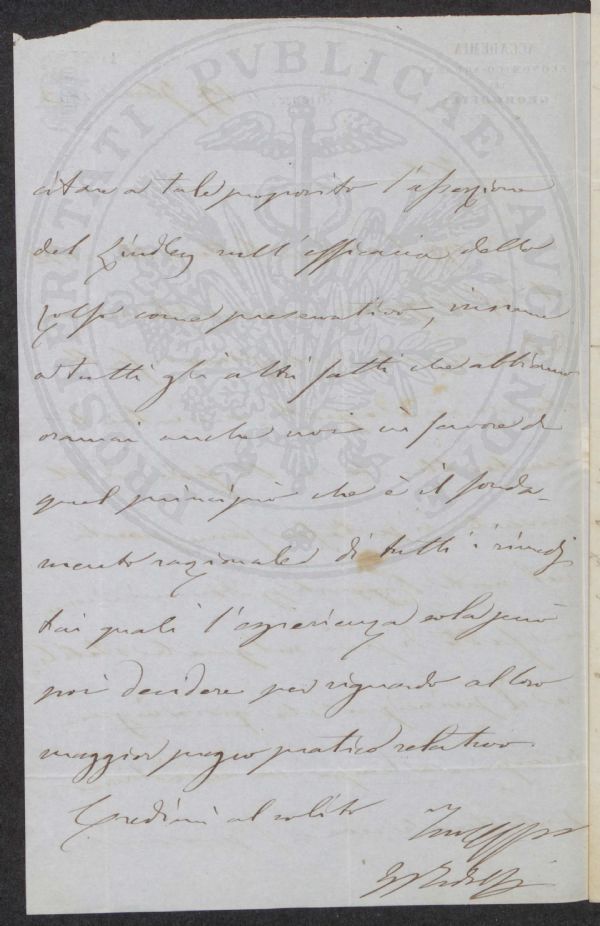 PROSPERITATI PVBLICAE AVGENDAE
citare a tale proposito l'asserzione
del Lindley sull'efficacia dello
zolfo come preservativo, insieme
a tutti gli altri fatti che abbiamo
oramai anche noi in favore di
quel principio che è il fonda-
mento razionale di tutti i rimedj
tra i quali l'esperienza sola può
poi decidere per riguardo al loro
maggior pregio pratico relativo
Credimi al solito
Ridolfi